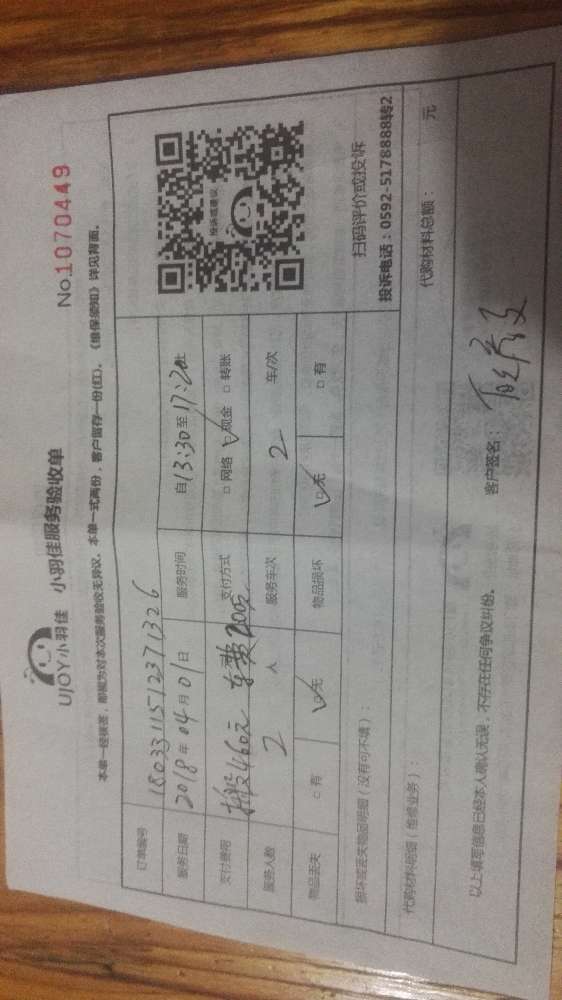 UJOY小羽佳 小羽佳服务验收单 No.1070449
本单一经签名，即视为对本次服务验收无异议。本单一式两份，客户留存一份(红)。《维保须知》详见背面。
订单编号 180331151237 1326
服务日期 2018年04月01日 服务时间 自13:30至17:20止
支付费用 搬家460元 车费200元 支付方式 □网络 ☑现金 □转账
服务人数 2 人 服务车次 2 车/次
物品丢失 □有 ☑无 物品损坏 ☑无 □有
投诉或建议
扫码评价或投诉
投诉电话：0592-5178888转2
损坏或丢失物品明细（没有可不填）：
代购材料明细（维修业务）： 代购材料总额： 元
以上填写信息已经本人确认无误，不存在任何争议纠纷。 客户签名：